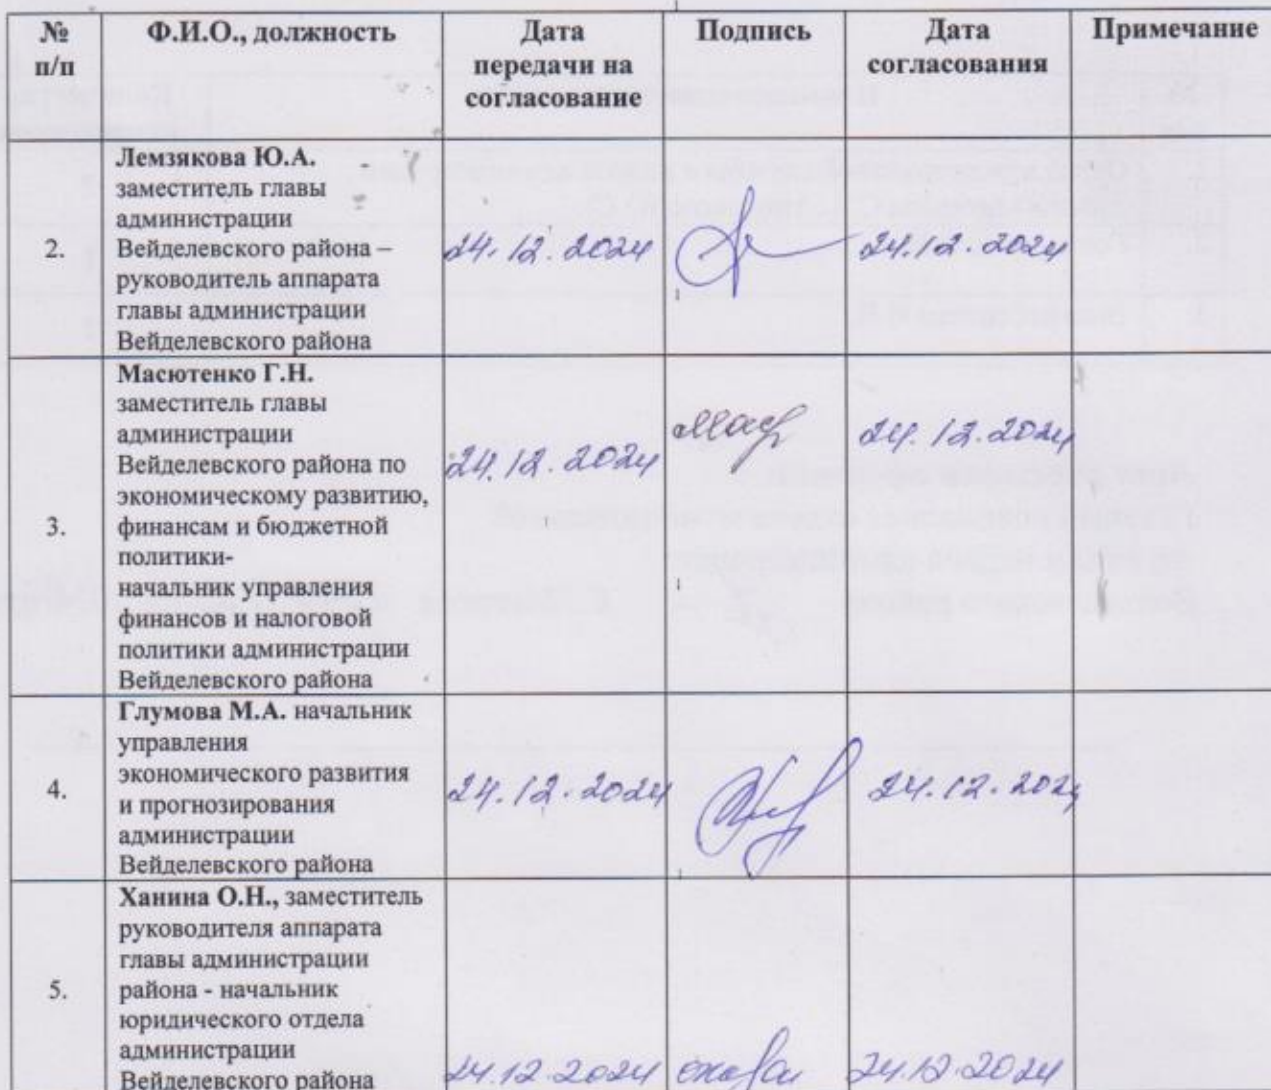 № п/п Ф.И.О., должность Дата передачи на согласование Подпись Дата согласования Примечание
2. Лемзякова Ю.А.
заместитель главы
администрации
Вейделевского района –
руководитель аппарата
главы администрации
Вейделевского района
24.12.2024 24.12.2024
3. Масютенко Г.Н.
заместитель главы
администрации
Вейделевского района по
экономическому развитию,
финансам и бюджетной
политики-
начальник управления
финансов и налоговой
политики администрации
Вейделевского района
24.12.2024 24.12.2024
4. Глумова М.А. начальник
управления
экономического развития
и прогнозирования
администрации
Вейделевского района
24.12.2024 24.12.2024
5. Ханина О.Н., заместитель
руководителя аппарата
главы администрации
района - начальник
юридического отдела
администрации
Вейделевского района
24.12.2024 24.12.2024